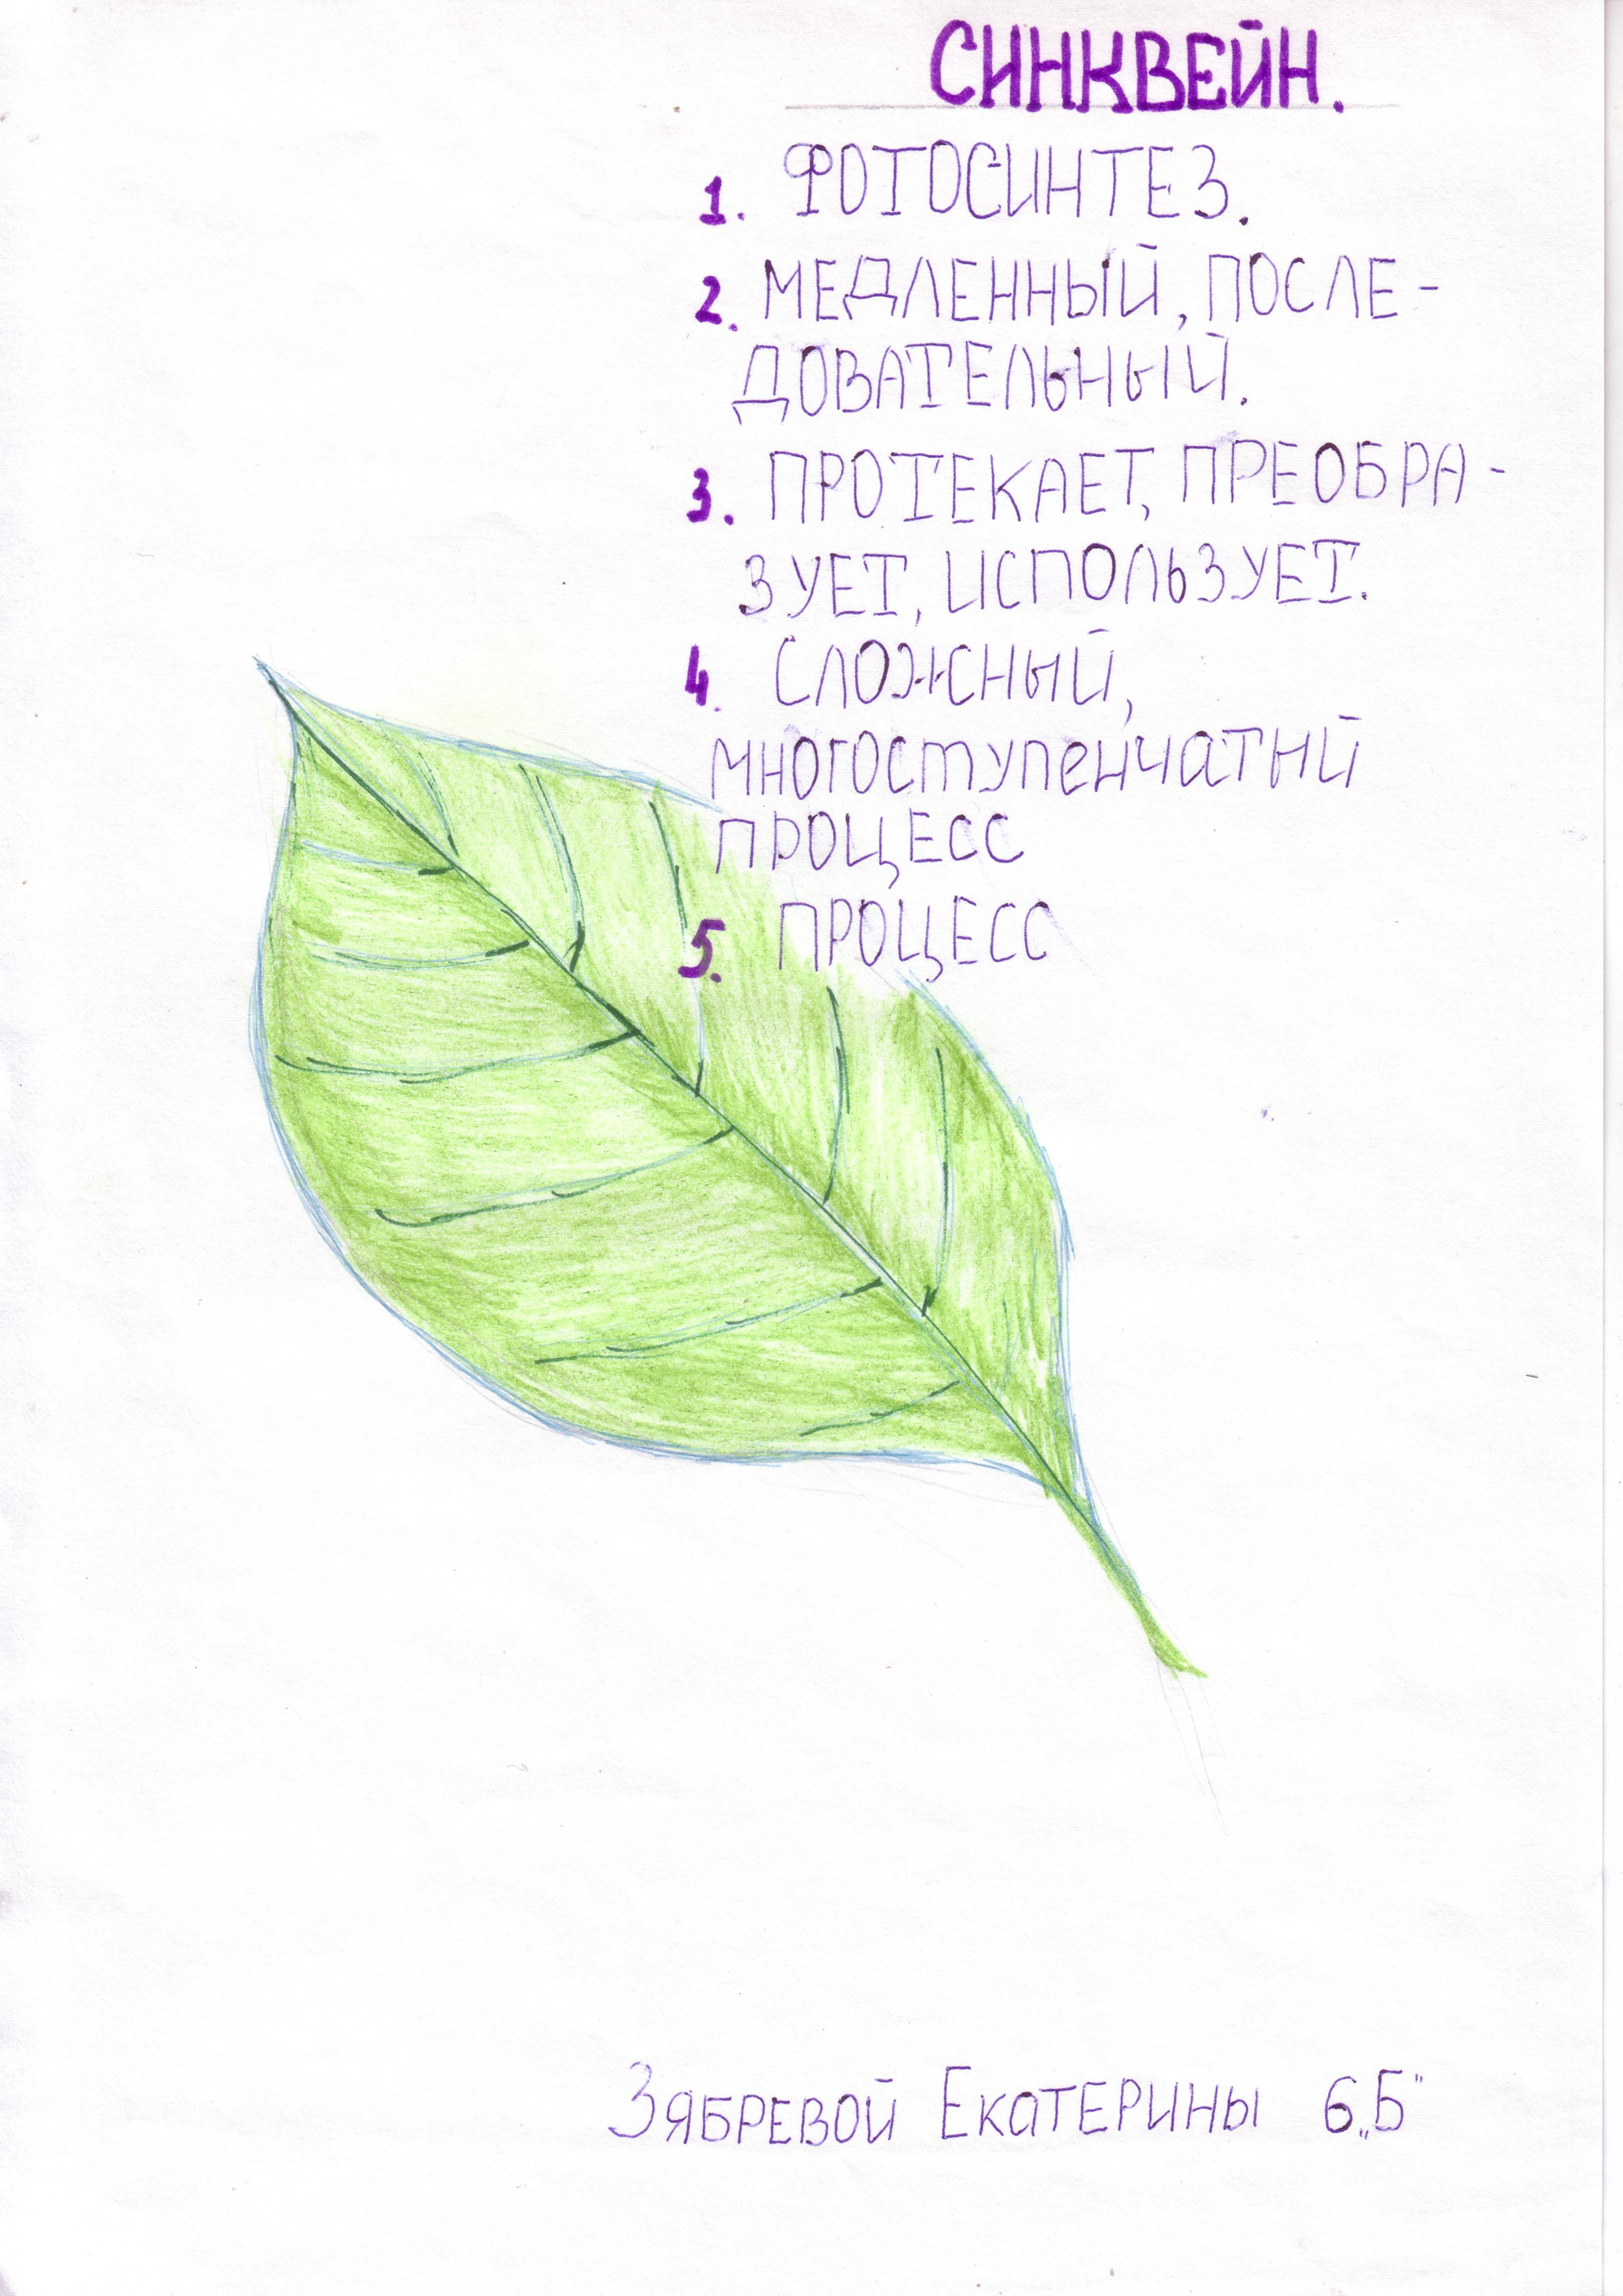 СИНКВЕЙН.
1. ФОТОСИНТЕЗ.
2. МЕДЛЕННЫЙ, ПОСЛЕ-
ДОВАТЕЛЬНЫЙ.
3. ПРОТЕКАЕТ, ПРЕОБРА-
ЗУЕТ, ИСПОЛЬЗУЕТ.
4. СЛОЖНЫЙ,
МНОГОСТУПЕНЧАТНЙ
ПРОЦЕСС
5. ПРОЦЕСС
ЗЯБРЕВОЙ ЕКАТЕРИНЫ 6„Б"